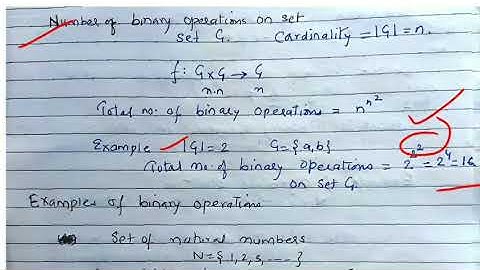 Number of binary operations on set
set G. Cardinality = |G| = n.
f: G×G → G
n.n n
Total no. of binary operations = n^n^2
Example |G| = 2 G = {a,b}
Total no. of binary operations = 2^2^2 = 2^4 = 16
on set G.
Examples of binary operations
Set of natural numbers
N = {1, 2, 3, ---- }